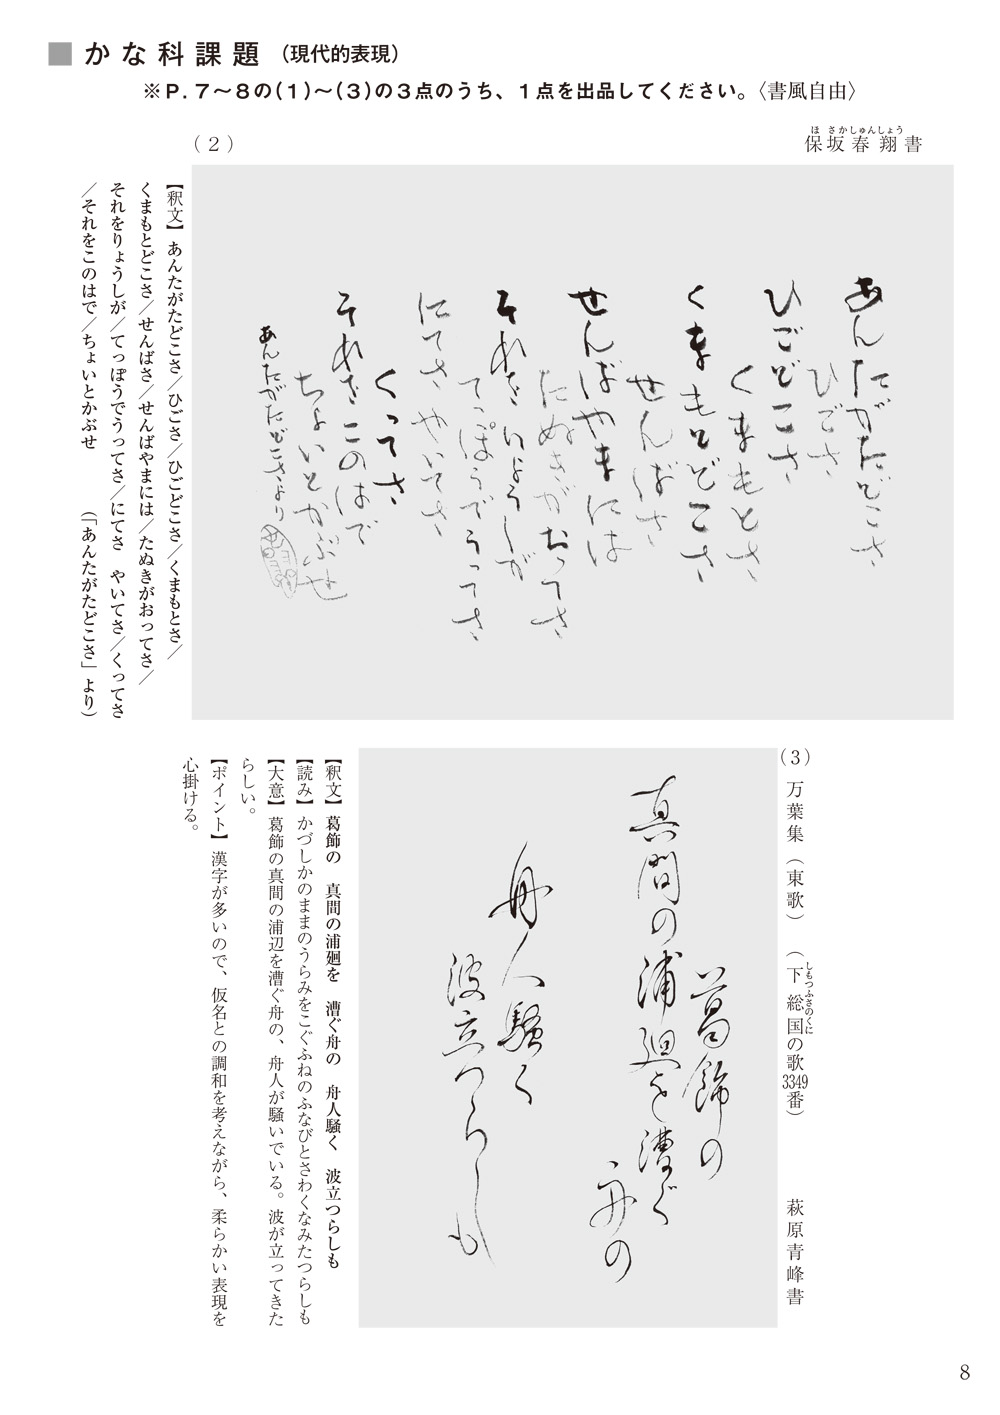 かな科課題（現代的表現）
※P.7～8の(1)～(3)の3点のうち、1点を出品してください。〈書風自由〉
（2）
保坂春翔書
ほさかしゅんしょう
あんたがたどこさ
ひごさ
ひごどこさ
くまもとさ
くまもとどこさ
せんばさ
せんばやまには
たぬきがおってさ
それをりょうしが
てっぽうでうってさ
にてさやいてさ
くってさ
それをこのはで
ちょいとかぶせ
あんたがたどこさより
【釈文】あんたがたどこさ／ひごさ／ひごどこさ／くまもとさ／
くまもとどこさ／せんばさ／せんばやまには／たぬきがおってさ／
それをりょうしが／てっぽうでうってさ／にてさ　やいてさ／くってさ
／それをこのはで／ちょいとかぶせ　（「あんたがたどこさ」より）
（3）万葉集（東歌）（下総国の歌3349番）　萩原青峰書
しもつふさのくに
葛飾の
真間の浦廻を漕ぐ
舟の
舟人騒く
波立つらしも
【釈文】葛飾の　真間の浦廻を　漕ぐ舟の　舟人騒く　波立つらしも
【読み】かづしかのままのうらみをこぐふねのふなびとさわくなみたつらしも
【大意】葛飾の真間の浦辺を漕ぐ舟の、舟人が騒いでいる。波が立ってきた
らしい。
【ポイント】漢字が多いので、仮名との調和を考えながら、柔らかい表現を
心掛ける。
8